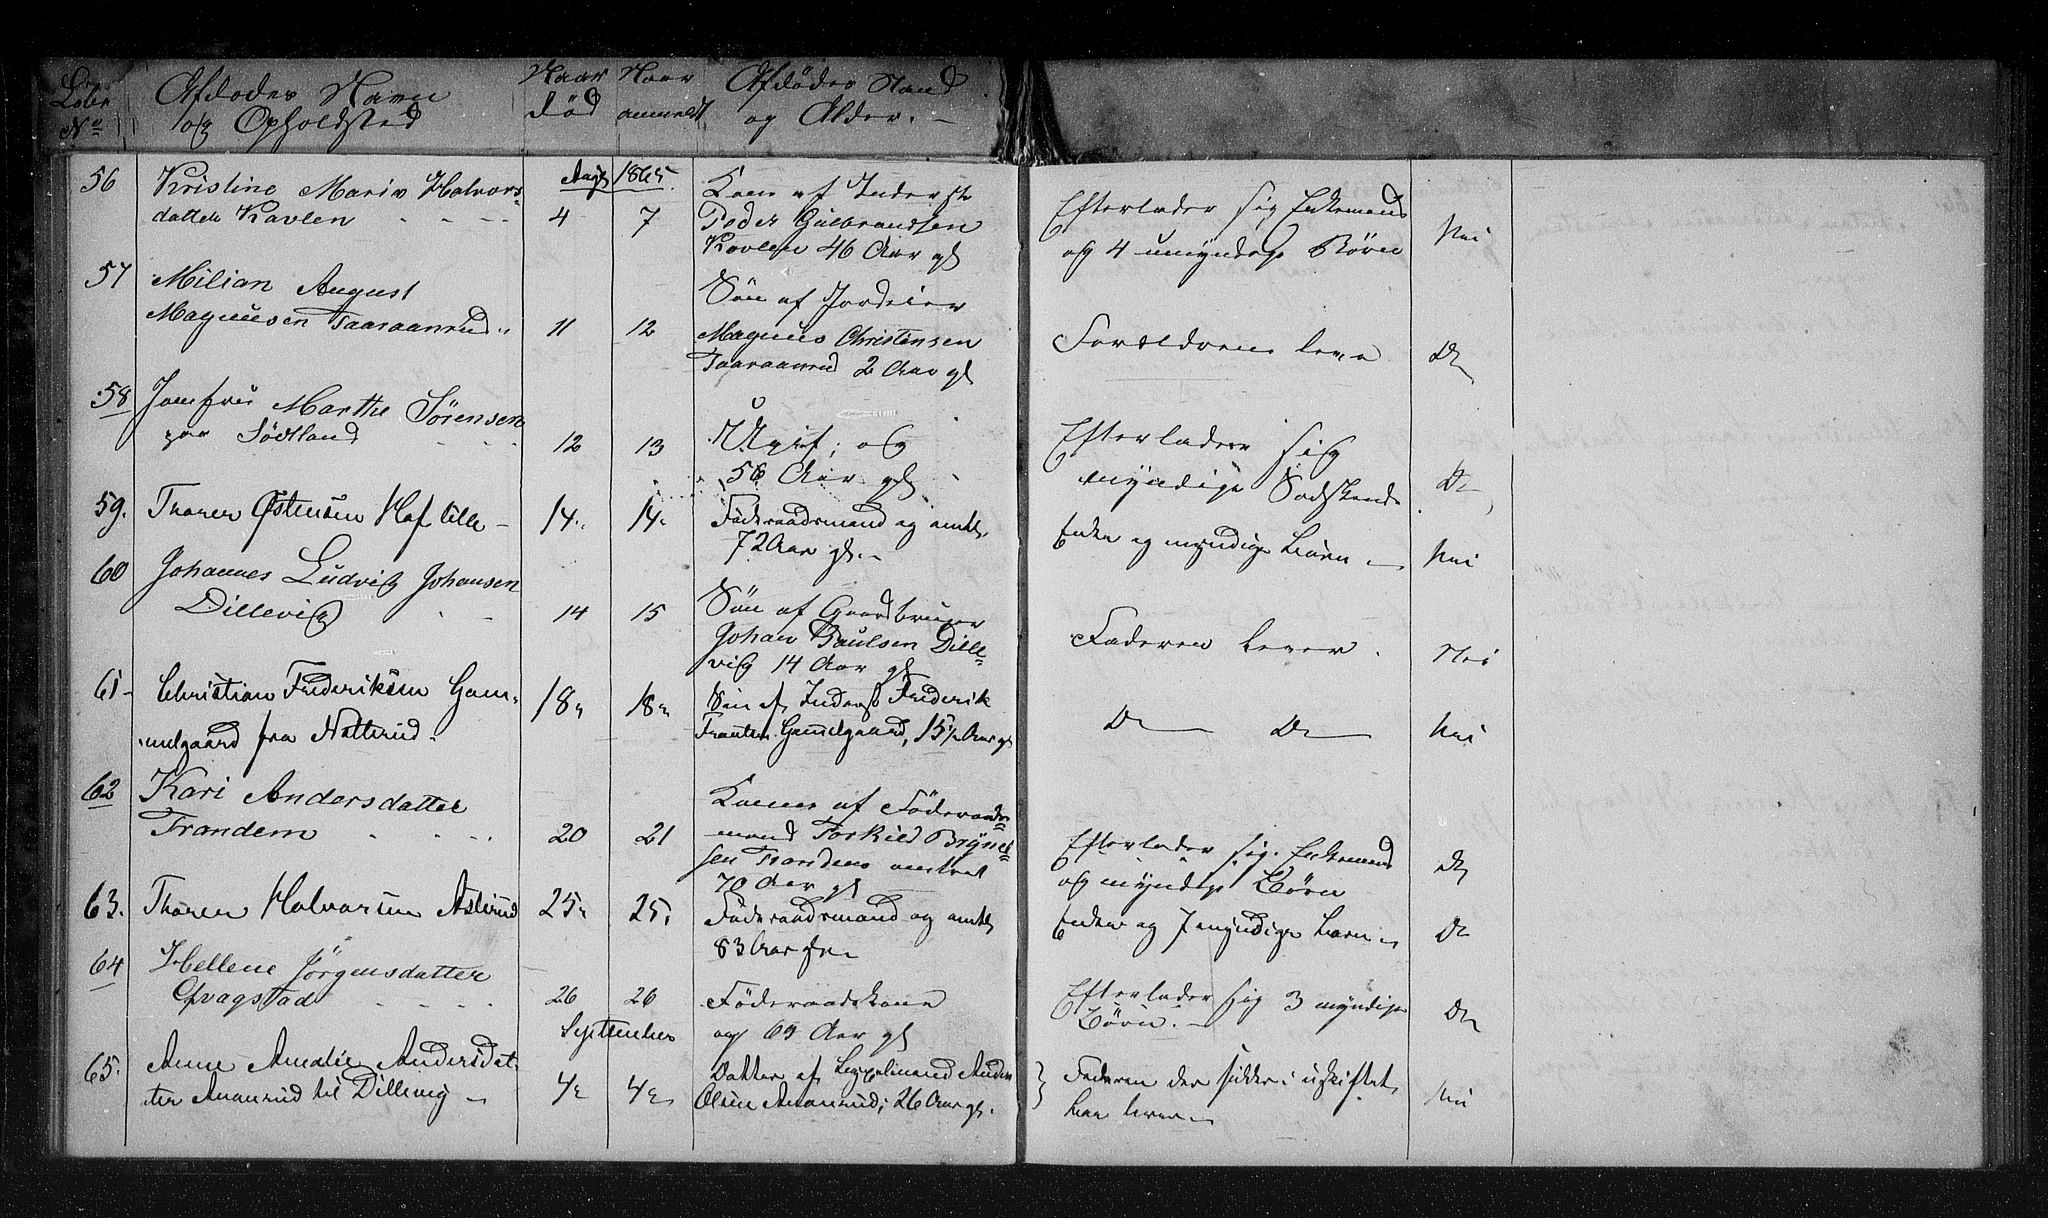 Löbe Afdødes Navn Naar Naar Afdødes Stand
No og Opholdsted död anmeldt og Alder. -
56 Kristine Marie Halvors-
datter Kavlen
Aug 1865.
4 7
Kone af Inderst
Peder Gulbrandsen
Kavlen 46 Aar gl
Efterlader sig Enkemand
og 4 umyndige Börn
Nei
57 Milian August
Magnusen Taaraanrud
11 12
Sön af Jordeier
Magnus Christensen
Taaraanrud 2 Aar gl
Forældrene leve
Do
58 Jomfru Marthe Sörensen
paa Södtland
12 13
Ugift, og
56 Aar gl
Efterlader sig
myndige Södskende
Do
59. Thorer Østensen Hof lille -
14. 14.
Föderaadsmand og omtr.
72 Aar gl. -
Enke og myndige Börn -
Nei
60 Johannes Ludvig Johansen
Dillevig
14 15
Sön af Gaardbruger
Johan Paulsen Dille-
vig 14 Aar gl
Faderen lever.
Nei
61 - Christian Frederiksen Gam-
melgaard fra Natterud.
18 18
Sön af Inderst Frederik
Frantsen Gamelgaard, 15 1/2 Aar gl
Do Do
Nei
62 Kari Andersdatter
Trandem
20 21
Kone af Föderaads-
mand Torkild Brynel-
sen Trandem omtret
70 Aar gl
Efterlader sig Enkemand
og myndige Börn
Do
63. Thorer Halvorsen Asterud
25 25
Föderaadsmand og omtr
83 Aar gl. -
Enke og 7 myndige Börn -
Do
64 Hellene Jörgensdatter
Opragstad
26 26
Föderaadskone
og 69 Aar gl
Efterlader sig 3 myndige
Börn. -
Do
September
65. Anne Amalie Andersdat-
ter Ananrud til Dillevig -
4 4
Datter af Anders
Olsen Ananrud, 26 Aar gl.
Faderen der sidder i uskiftet
boe lever. -
Nei